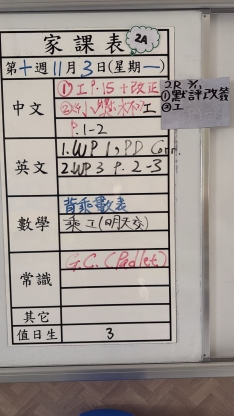 家課表 2A
第十週11月3日(星期一)
中文
①工P.15+改正
工
P.1-2
①默評改
②工
英文
1.WP 1, PD Corr.
2.WP 3 P.2-3
數學
背乘數表
乘工(明天交)
常識
G.C.(Padlet)
其它
值日生 3